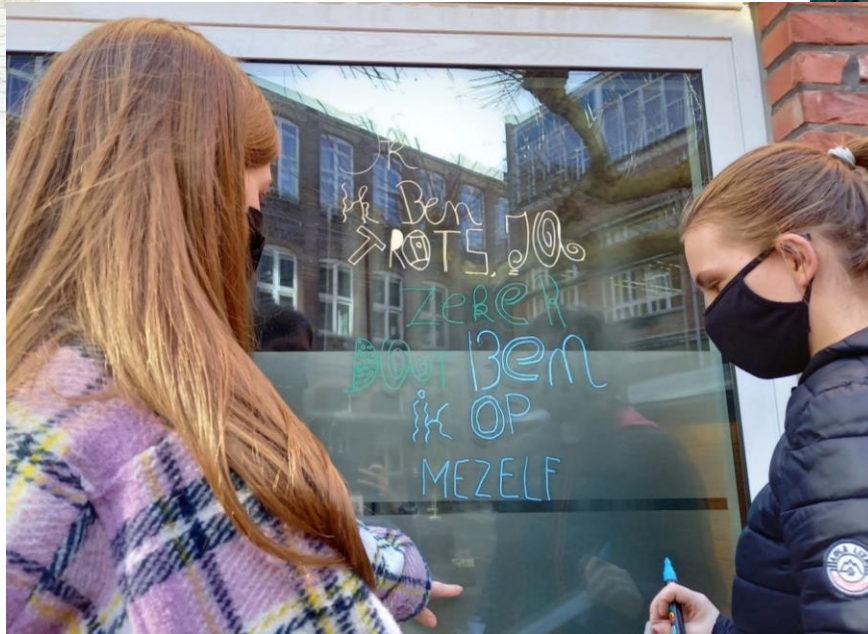 ik
ik Ben
TROTS, JA
ZEKER
BOOT BEN
ik OP
MEZELF